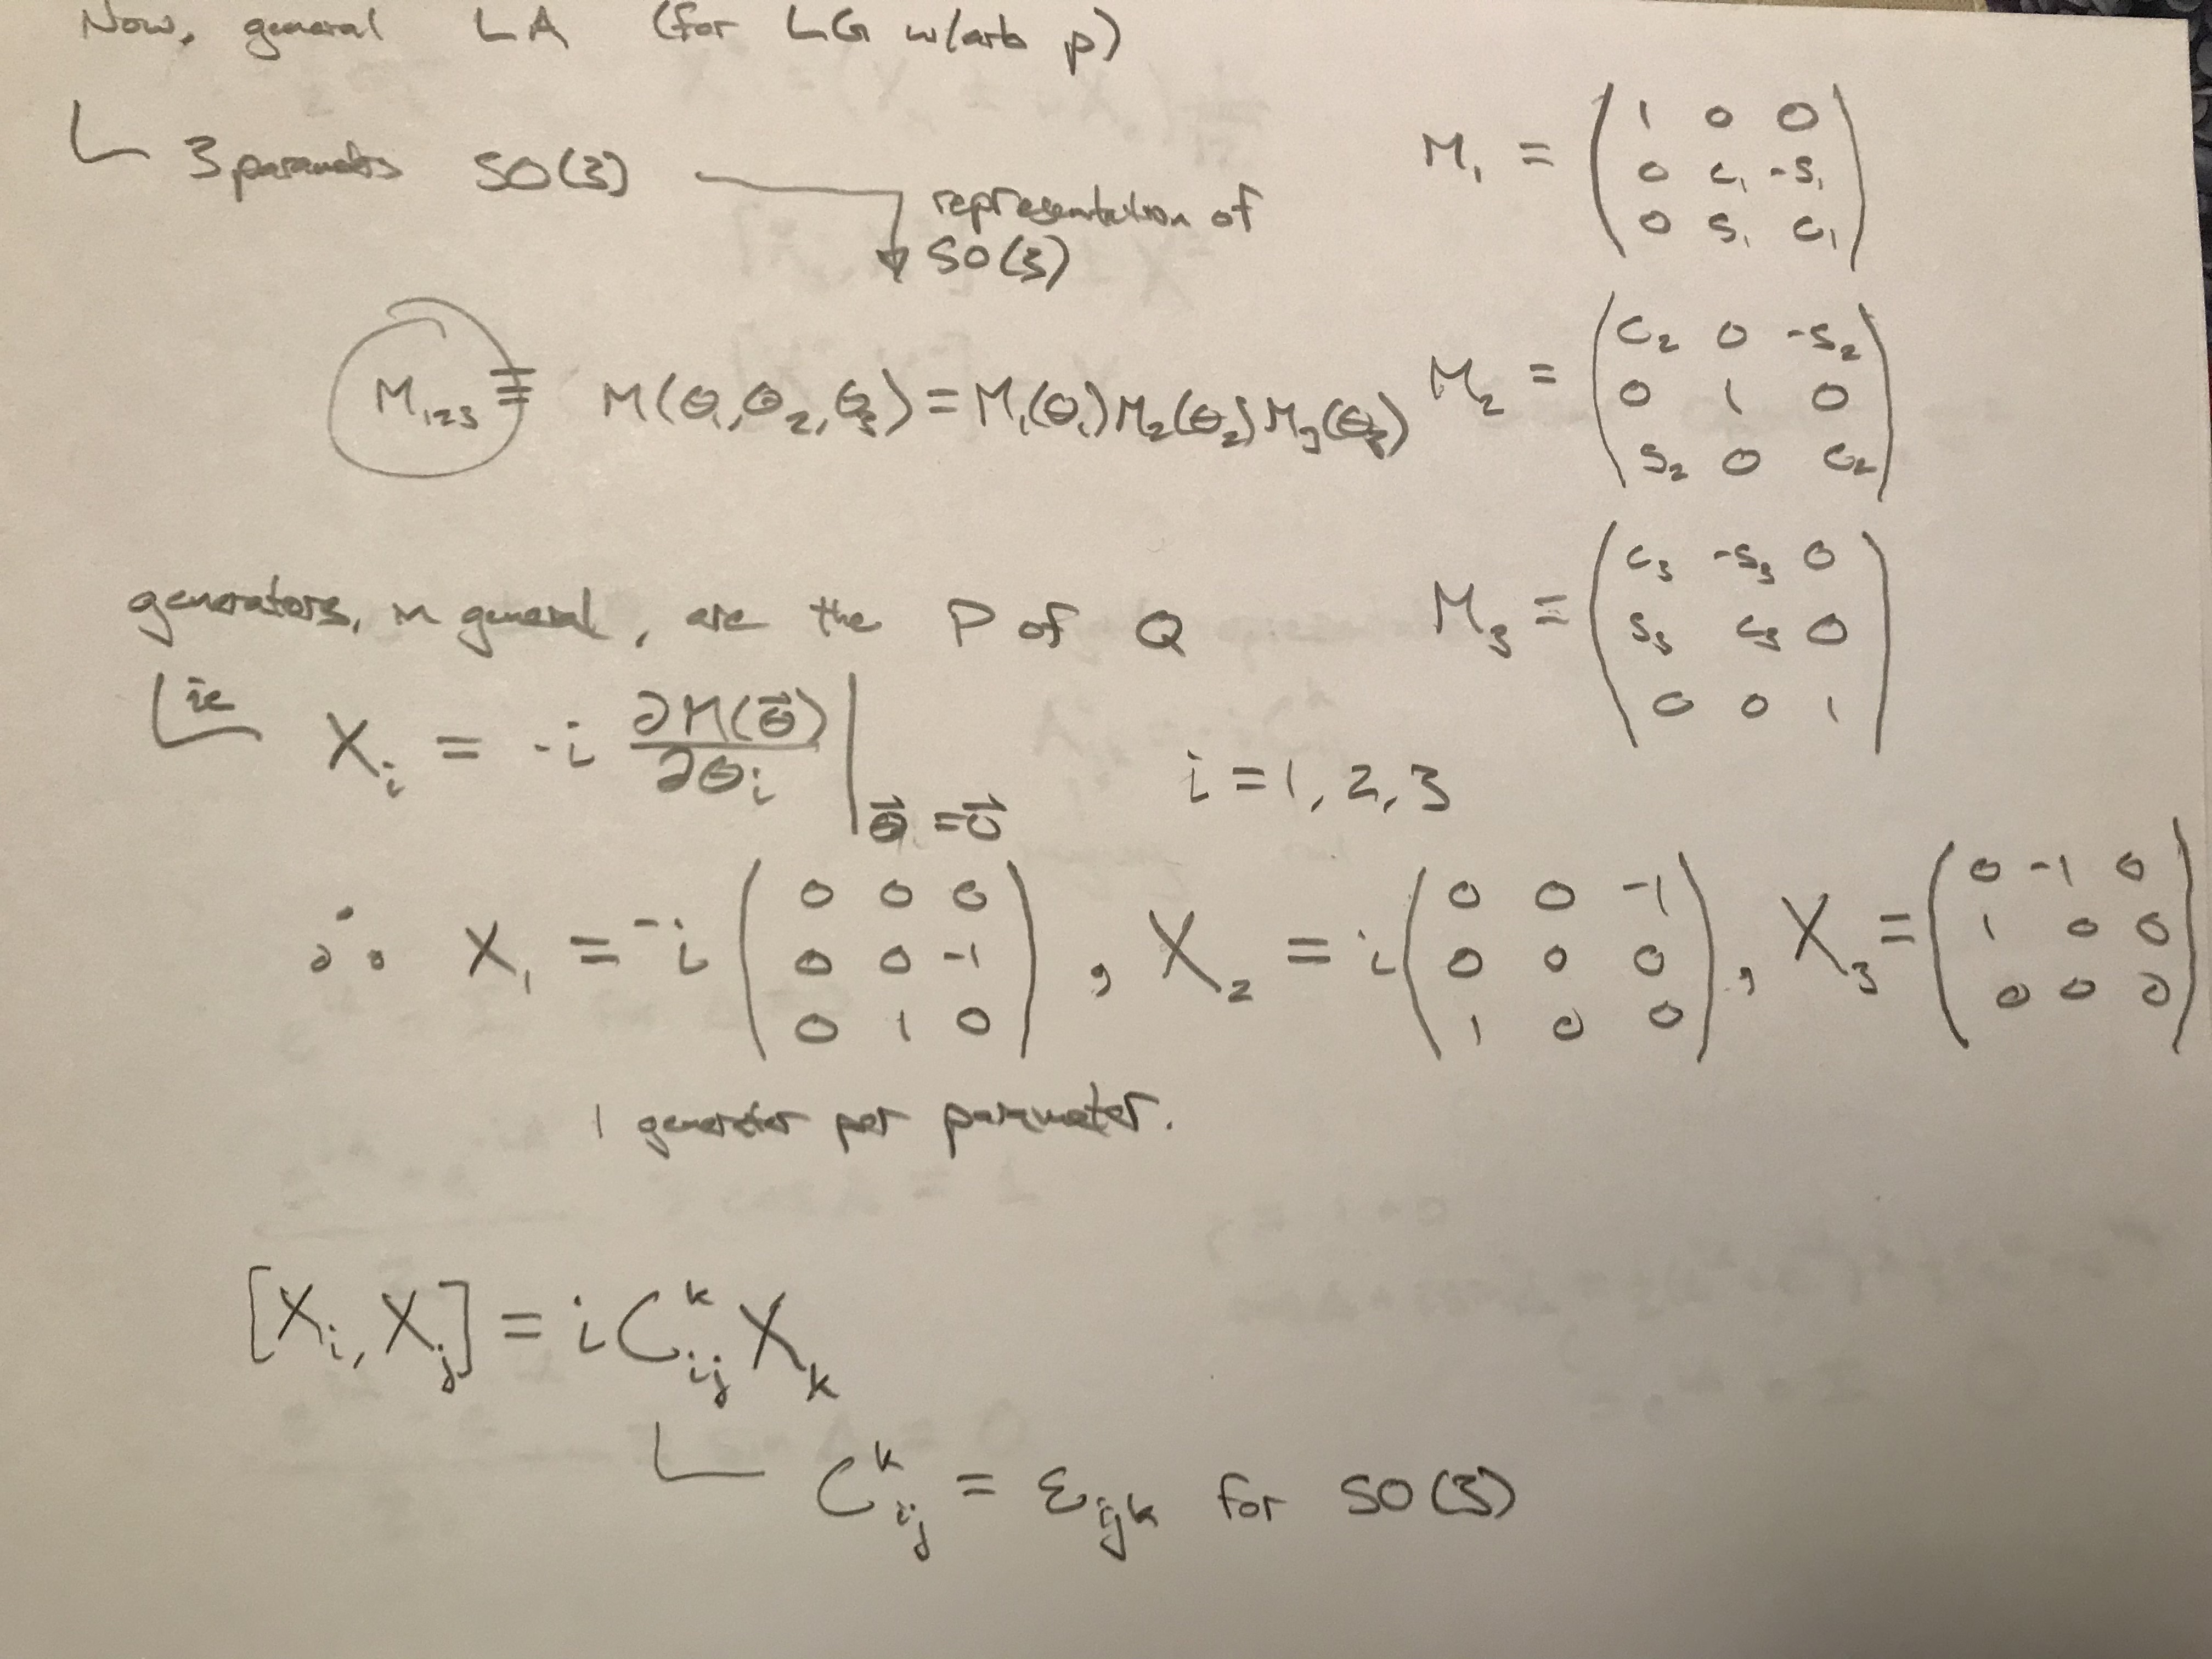 Now, general LA (for LG w/arb p)
3 parameters SO(3)
representation of
SO(3)
M₁ = ( 1 0 0
0 c₁ -s₁
0 s₁ c₁ )
M₁₂₃ ≡ M(θ₁,θ₂,θ₃) = M₁(θ₁)M₂(θ₂)M₃(θ₃)
M₂ = ( c₂ 0 -s₂
0 1 0
s₂ 0 c₂ )
M₃ = ( c₃ -s₃ 0
s₃ c₃ 0
0 0 1 )
generators, in general, are the P of Q
ie X_i = -i ∂M(θ⃗)/∂θ_i | θ⃗ = 0⃗ i = 1, 2, 3
∴ X₁ = -i ( 0 0 0
0 0 -1
0 1 0 ) , X₂ = i ( 0 0 -1
0 0 0
1 0 0 ) , X₃ = ( 0 -1 0
1 0 0
0 0 0 )
1 generator per parameter.
[X_i, X_j] = i C_ij^k X_k
C_ij^k = ε_ijk for SO(3)